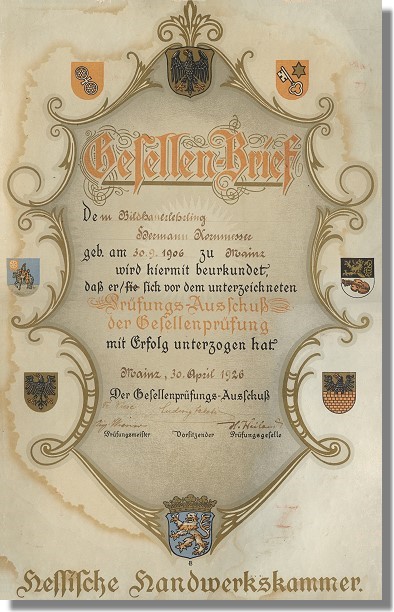 Gesellen-Brief
Dem Bildhauerlehrling
Hermann Kornmesser
geb. am 30.9.1906 zu Mainz
wird hiermit beurkundet,
daß er/sie sich vor dem unterzeichneten
Prüfungs-Ausschuß
der Gesellenprüfung
mit Erfolg unterzogen hat.
Mainz, 30. April 1926
Der Gesellenprüfungs-Ausschuß
Ludwig
Prüfungsmeister Vorsitzender Prüfungsgeselle
Hessische Handwerkskammer.